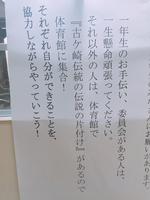 一年生のお手伝い、委員会がある人は、
一生懸命頑張ってください。
それ以外の人は、体育館で
『古ケ崎伝統の伝説の片付け』があるので
体育館に集合！
それぞれ自分ができることを、
協力しながらやっていこう！